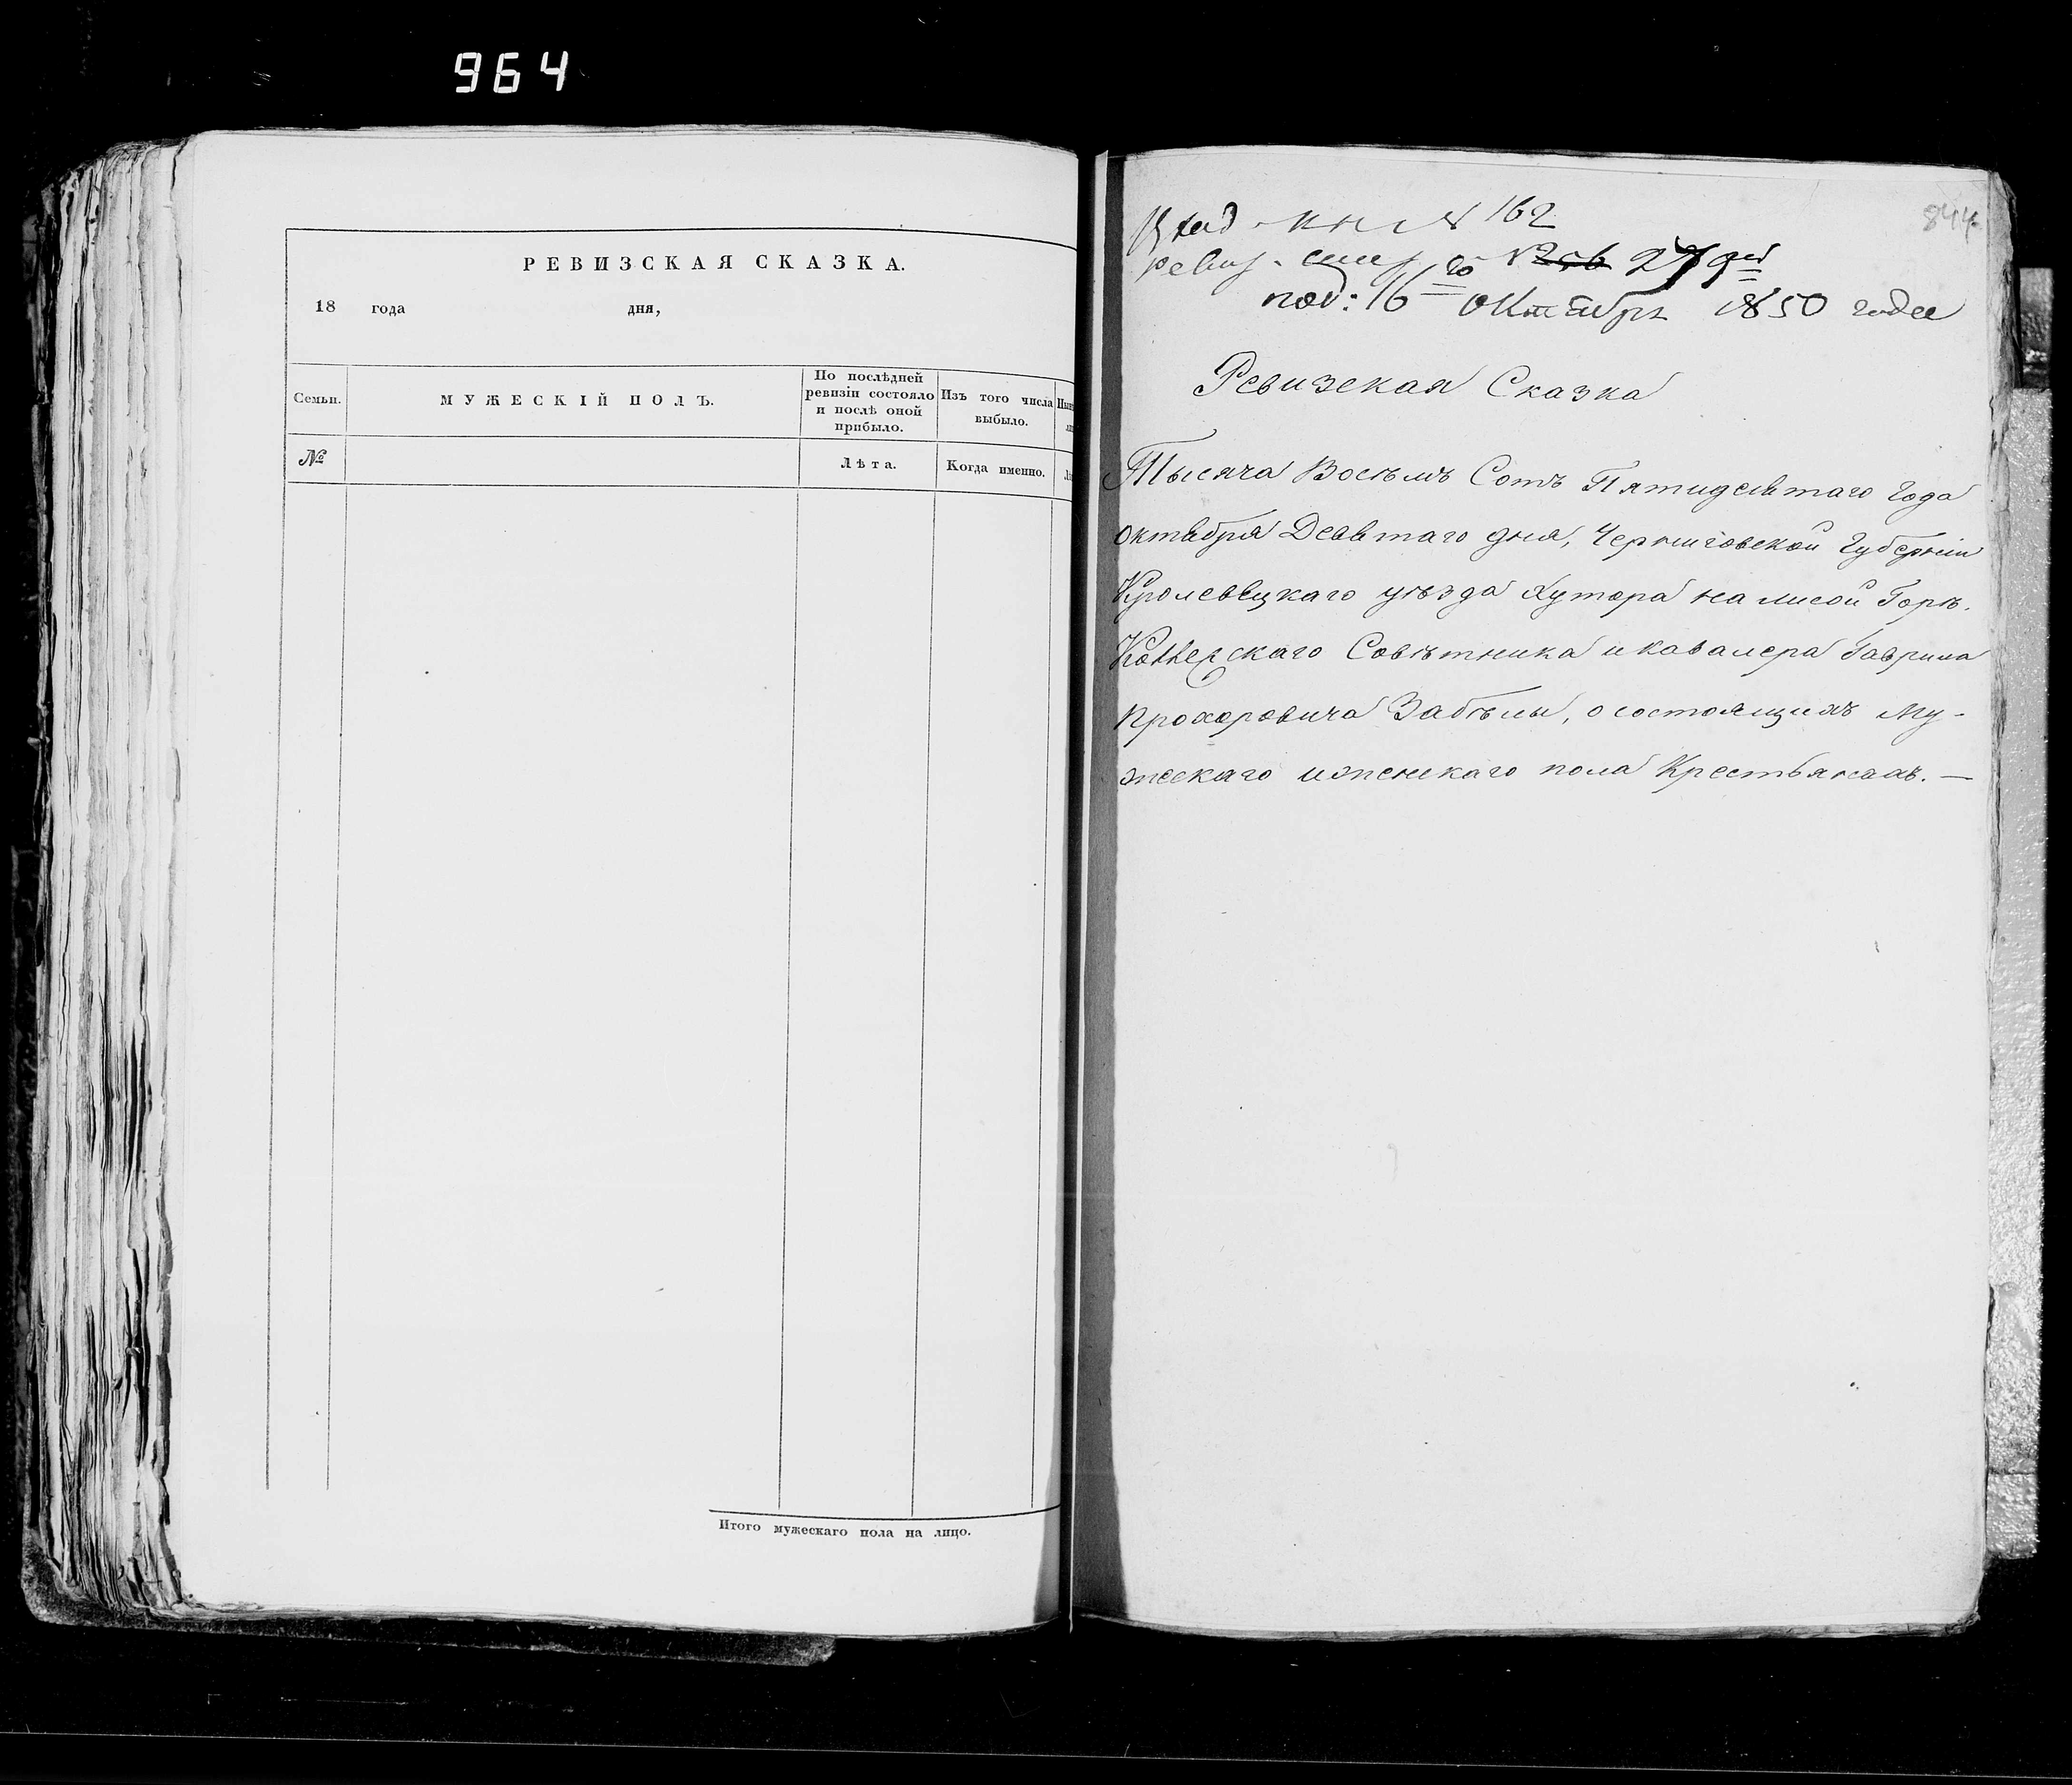 964
РЕВИЗСКАЯ СКАЗКА.
18 года дня,
Семьи.
МУЖЕСКІЙ ПОЛЪ.
По послѣдней
ревизіи состояло
и послѣ оной
прибыло.
Изъ того числа
выбыло.
№
Лѣта.
Когда именно.
Итого мужескаго пола на лицо.
844
162
27
пол: 16 го Октября 1850 года
Ревизская Сказка
Тысяча Восѣмъ Сотъ Пятидесятаго Года
октября Девятаго дня, Черниговской Губерніи
Кролевецкаго уѣзда Хутора на лисой Горѣ.
Совѣтника и кавалера Гаврила
Прохоровича Забѣлы, о состоящихъ Му-
жескаго и женскаго пола Крестьянахъ. —